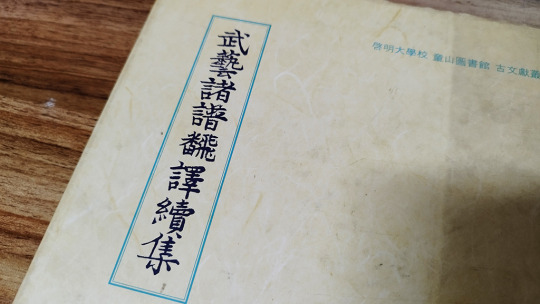 武藝諸譜飜譯續集
啓明大學校 童山圖書館 古文獻叢